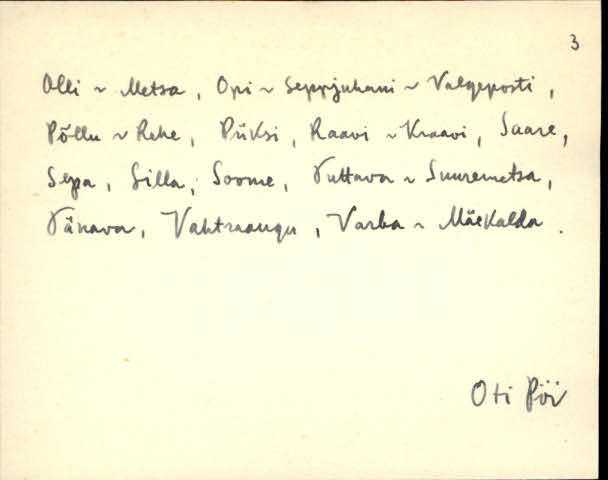 3
Olli ~ Metsa, Opi ~ Seppjuhani ~ Valgeposti,
Põllu ~ Rehe, Püksi, Raavi ~ Kraavi, Saare,
Sepa, Silla, Soome, Tuttava ~ Suuremetsa,
Tänava, Vahtraaugu, Varba ~ Mäekalda.
Oti Pöi